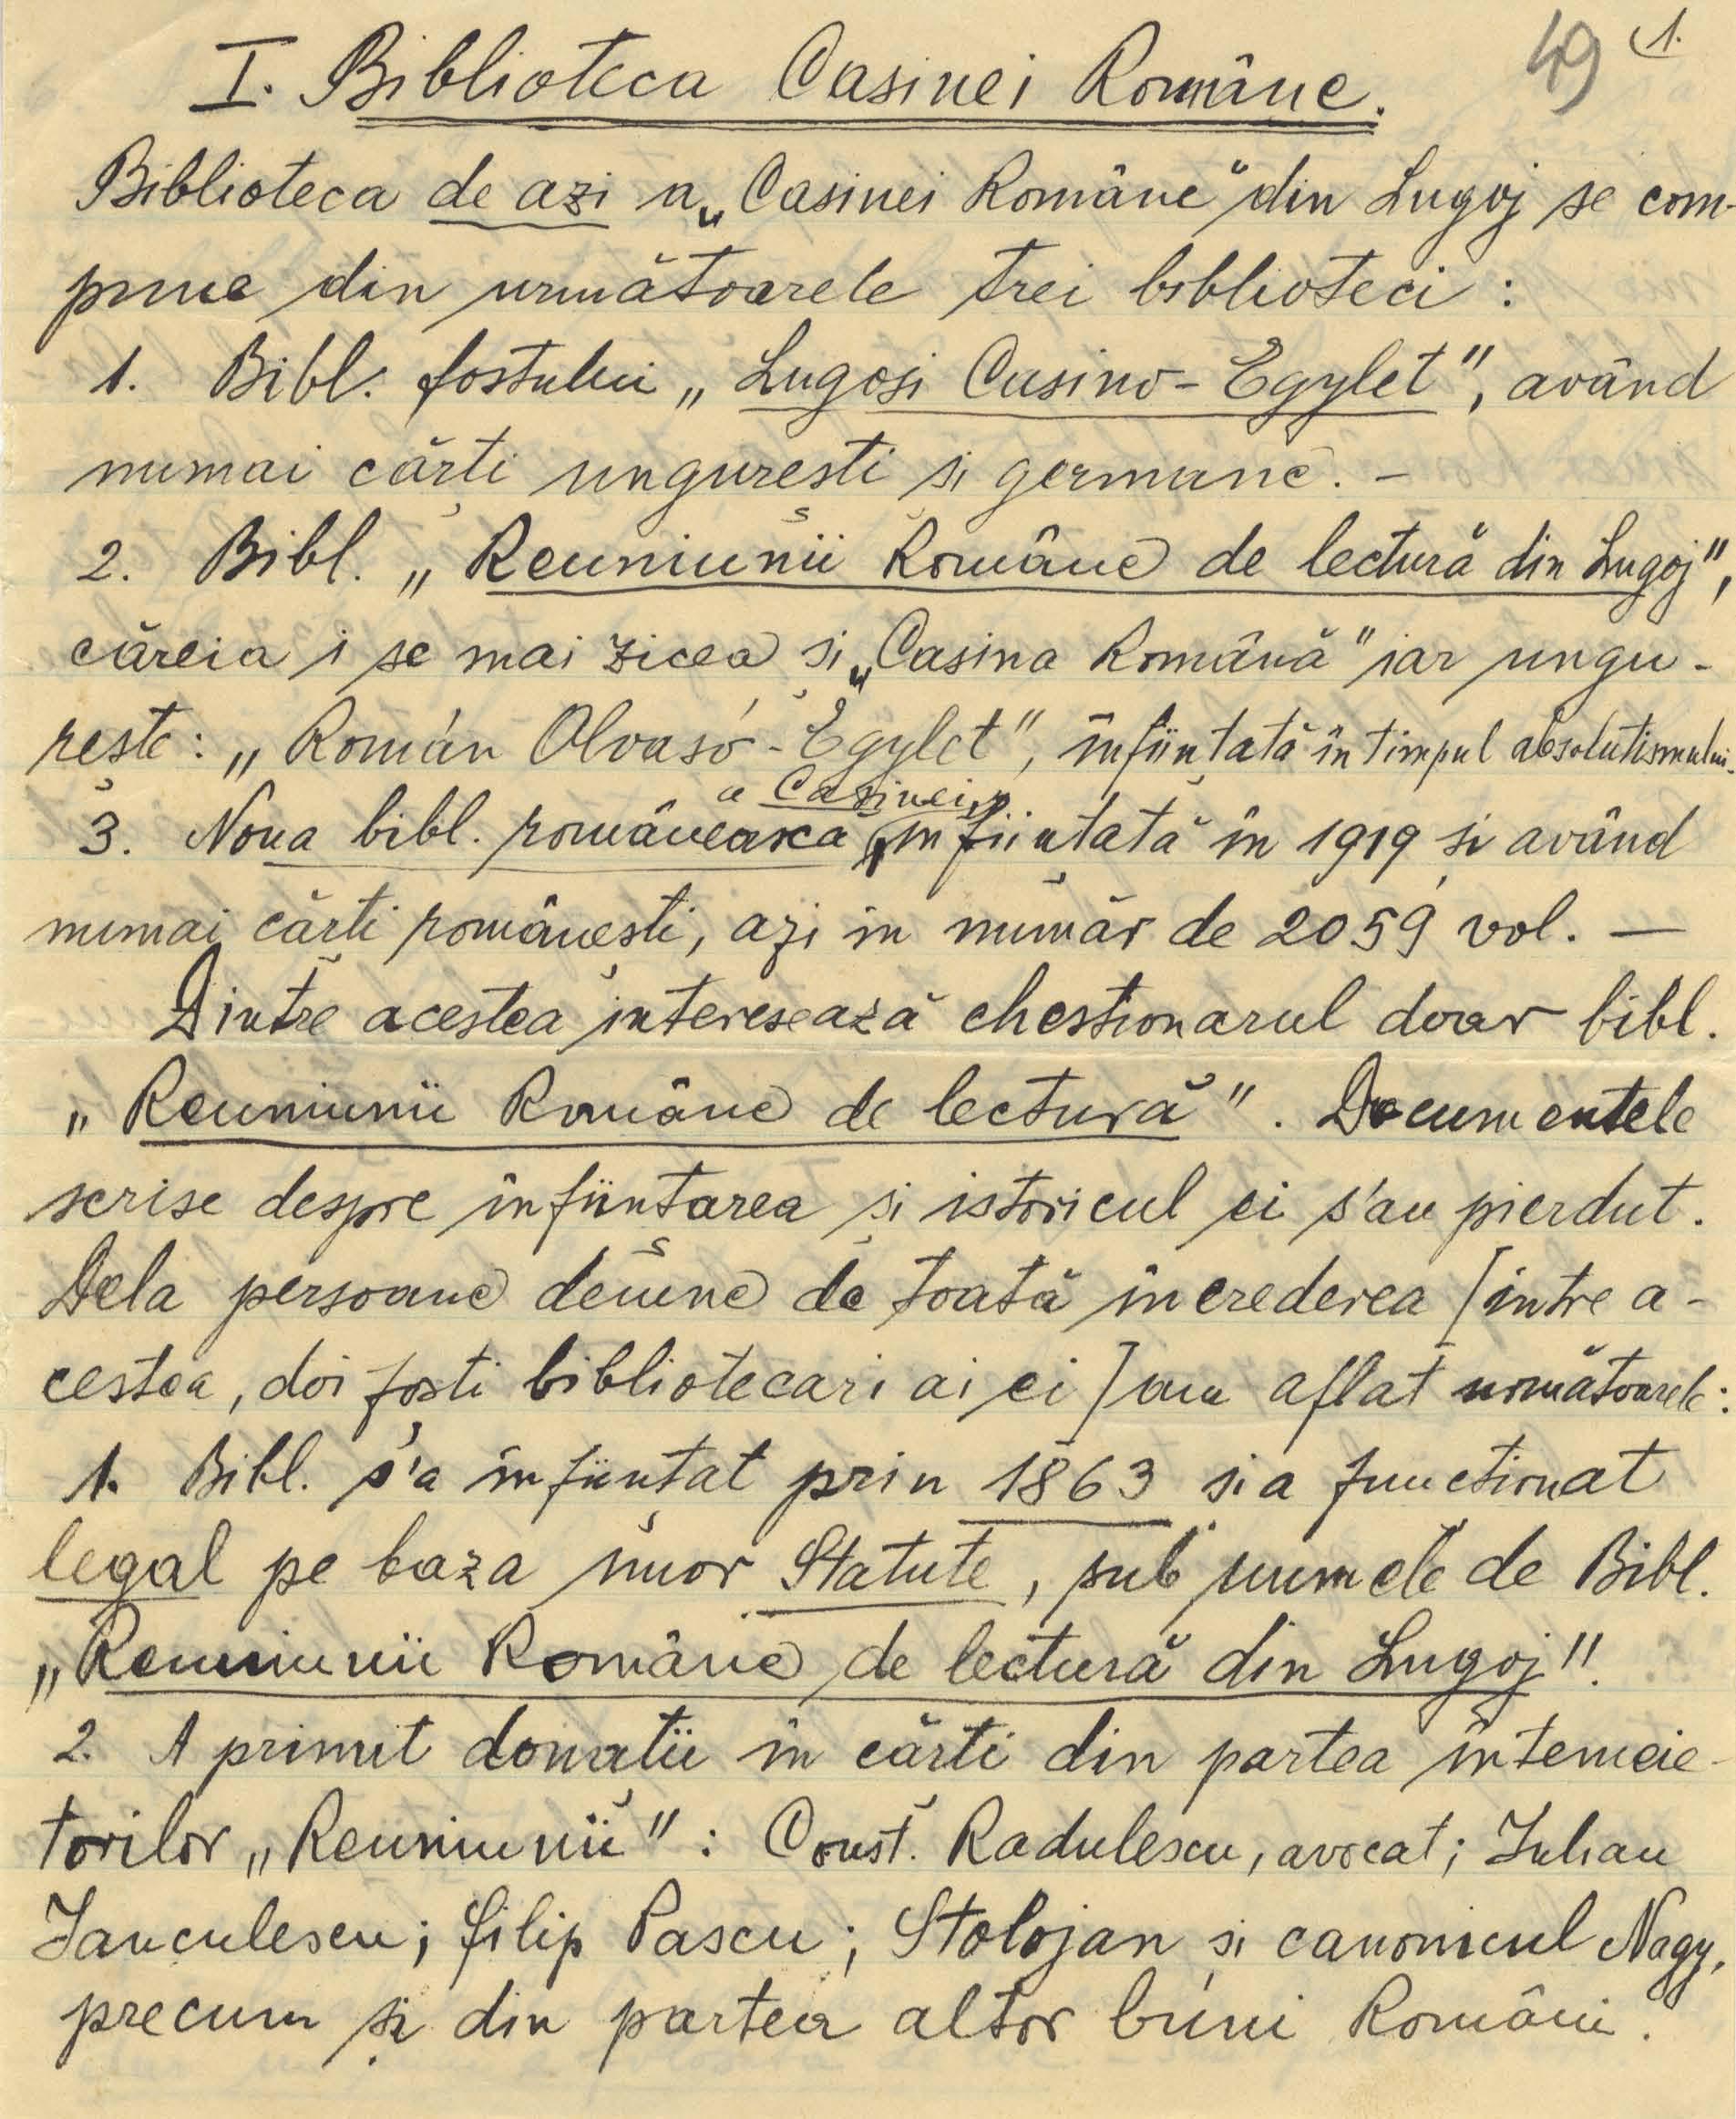 49 1.
I. Biblioteca Casinei Române.
Biblioteca de azi a „Casinei Române" din Lugoj se com-
pune din următoarele trei biblioteci :
1. Bibl. fostului „Lugosi Casino-Egylet", având
numai cărți ungurești și germane. -
2. Bibl. „Reuniunii Române de lectură din Lugoj",
căreia i se mai zicea și „Casina Română" iar ungu-
rește: „Román Olvasó-Egylet", înființată în timpul absolutismului.
a Casinei,
3. Noua bibl. românească înființată în 1919 și având
numai cărți românești, azi în număr de 2059 vol. —
Dintre acestea interesează chestionarul doar bibl.
„Reuniunii Române de lectură". Documentele
scrise despre înființarea și istoricul ei s'au pierdut.
Dela persoane demne de toată încrederea [între a-
cestea, doi foști bibliotecari ai ei] am aflat următoarele:
1. Bibl. s'a înființat prin 1863 și a funcționat
legal pe baza unor Statute, sub numele de Bibl.
„Reuniunii Române de lectură din Lugoj".
2. A primit donații în cărți din partea întemeie-
torilor „Reuniunii" : Const. Radulescu, avocat; Iulian
Ianculescu; Filip Pascu; Stolojan și canonicul Nagy,
precum și din partea altor buni Români.